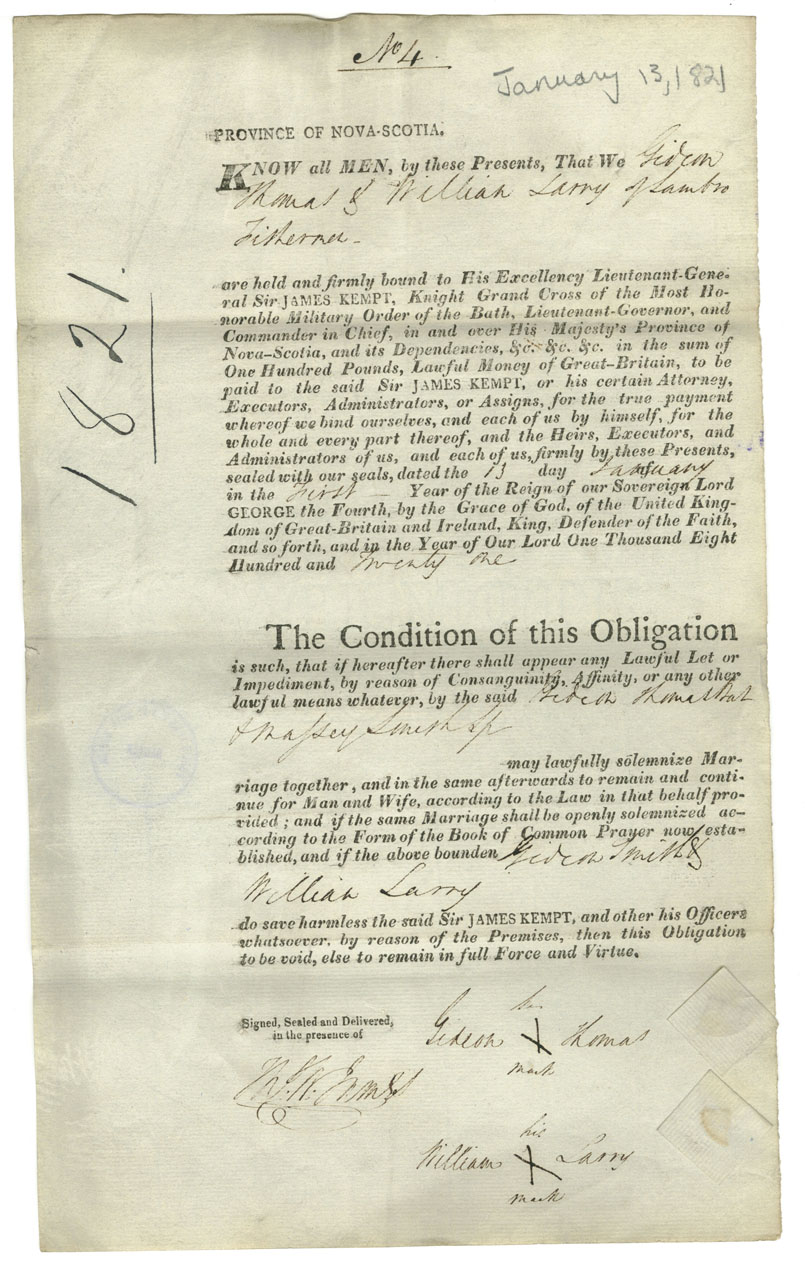 No 4.
January 13, 1821
1821.
PROVINCE OF NOVA-SCOTIA.
KNOW all MEN, by these Presents, That We Gideon
Thomas & William Larry of Sambro
Fishermen -
are held and firmly bound to His Excellency Lieutenant-Gene-
ral Sir JAMES KEMPT, Knight Grand Cross of the Most Ho-
norable Military Order of the Bath, Lieutenant-Governor, and
Commander in Chief, in and over His Majesty's Province of
Nova-Scotia, and its Dependencies, &c. &c. &c. in the sum of
One Hundred Pounds, Lawful Money of Great-Britain, to be
paid to the said Sir JAMES KEMPT, or his certain Attorney,
Executors, Administrators, or Assigns, for the true payment
whereof we bind ourselves, and each of us by himself, for the
whole and every part thereof, and the Heirs, Executors, and
Administrators of us, and each of us, firmly by these Presents,
sealed with our seals, dated the 13 day January
in the First - Year of the Reign of our Sovereign Lord
GEORGE the Fourth, by the Grace of God, of the United King-
dom of Great-Britain and Ireland, King, Defender of the Faith,
and so forth, and in the Year of Our Lord One Thousand Eight
Hundred and Twenty one
The Condition of this Obligation
is such, that if hereafter there shall appear any Lawful Let or
Impediment, by reason of Consanguinity, Affinity, or any other
lawful means whatever, by the said Gideon Thomas Bat
& Massey Smith Sp
may lawfully solemnize Mar-
riage together, and in the same afterwards to remain and conti-
nue for Man and Wife, according to the Law in that behalf pro-
vided; and if the same Marriage shall be openly solemnized ac-
cording to the Form of the Book of Common Prayer now esta-
blished, and if the above bounden Gideon Smith &
William Larry
do save harmless the said Sir JAMES KEMPT, and other his Officers
whatsoever, by reason of the Premises, then this Obligation
to be void, else to remain in full Force and Virtue.
Signed, Sealed and Delivered,
in the presence of
his
Gideon X Thomas
mark
his
William X Larry
mark